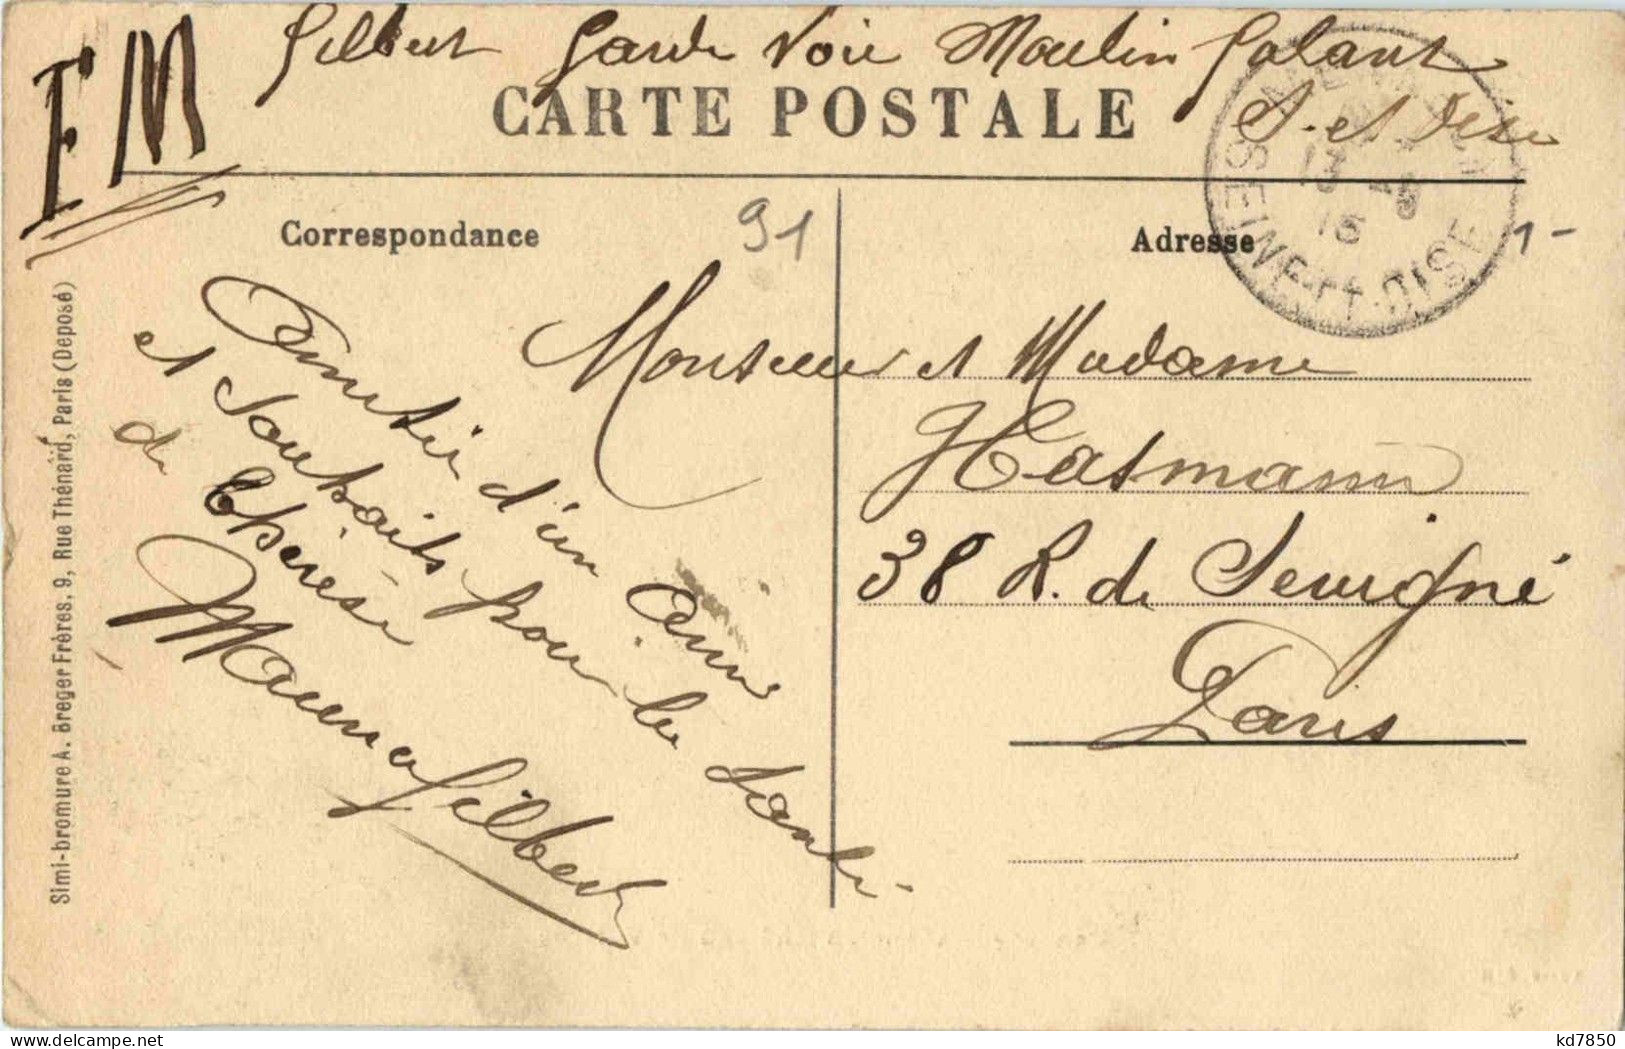 F M
Gilbert Garde Voie Moulin Galant
S. et Oise
CARTE POSTALE
SEINE-ET-OISE
13 -8
15
Correspondance
91
Adresse
1-
Amitié d'un Ami
et Souhaits pour la Santé
de Thérèse
Gilbert
Monsieur et Madame
Hatmann
38 R. de Sevigné
Paris
Simi-bromure A. Breger Frères, 9, Rue Thénard, Paris (Deposé)
kd7850